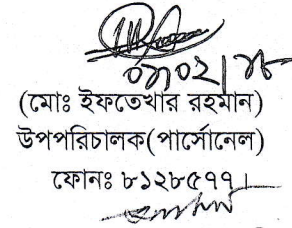 (মোঃ ইফতেখার রহমান)
উপপরিচালক(পার্সোনেল)
ফোনঃ ৮১২৮৫৭৭।